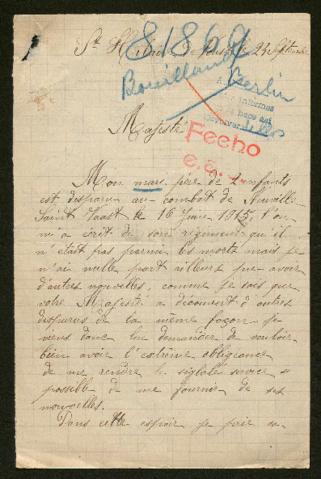 81869
St H de 24 Septembre
Bouilland Berlin
Majesté
Fecho
Mon mari, père de enfants
est disparu au combat de Neuville
Saint Vaast le 16 Juin 1915, l'on
m'a écrit de son régiment qu'il
n'était pas parmi les morts mais je
n'ai nulle part ailleurs que avoir
d'autres nouvelles, comme je sais que
votre Majesté a découvert d'autres
disparus de la même façon je
viens donc lui demander de vouloir
bien avoir l'extrême obligeance
de me rendre le service si
possible de me fournir de ses
nouvelles.
Dans cette espoir je prie sa